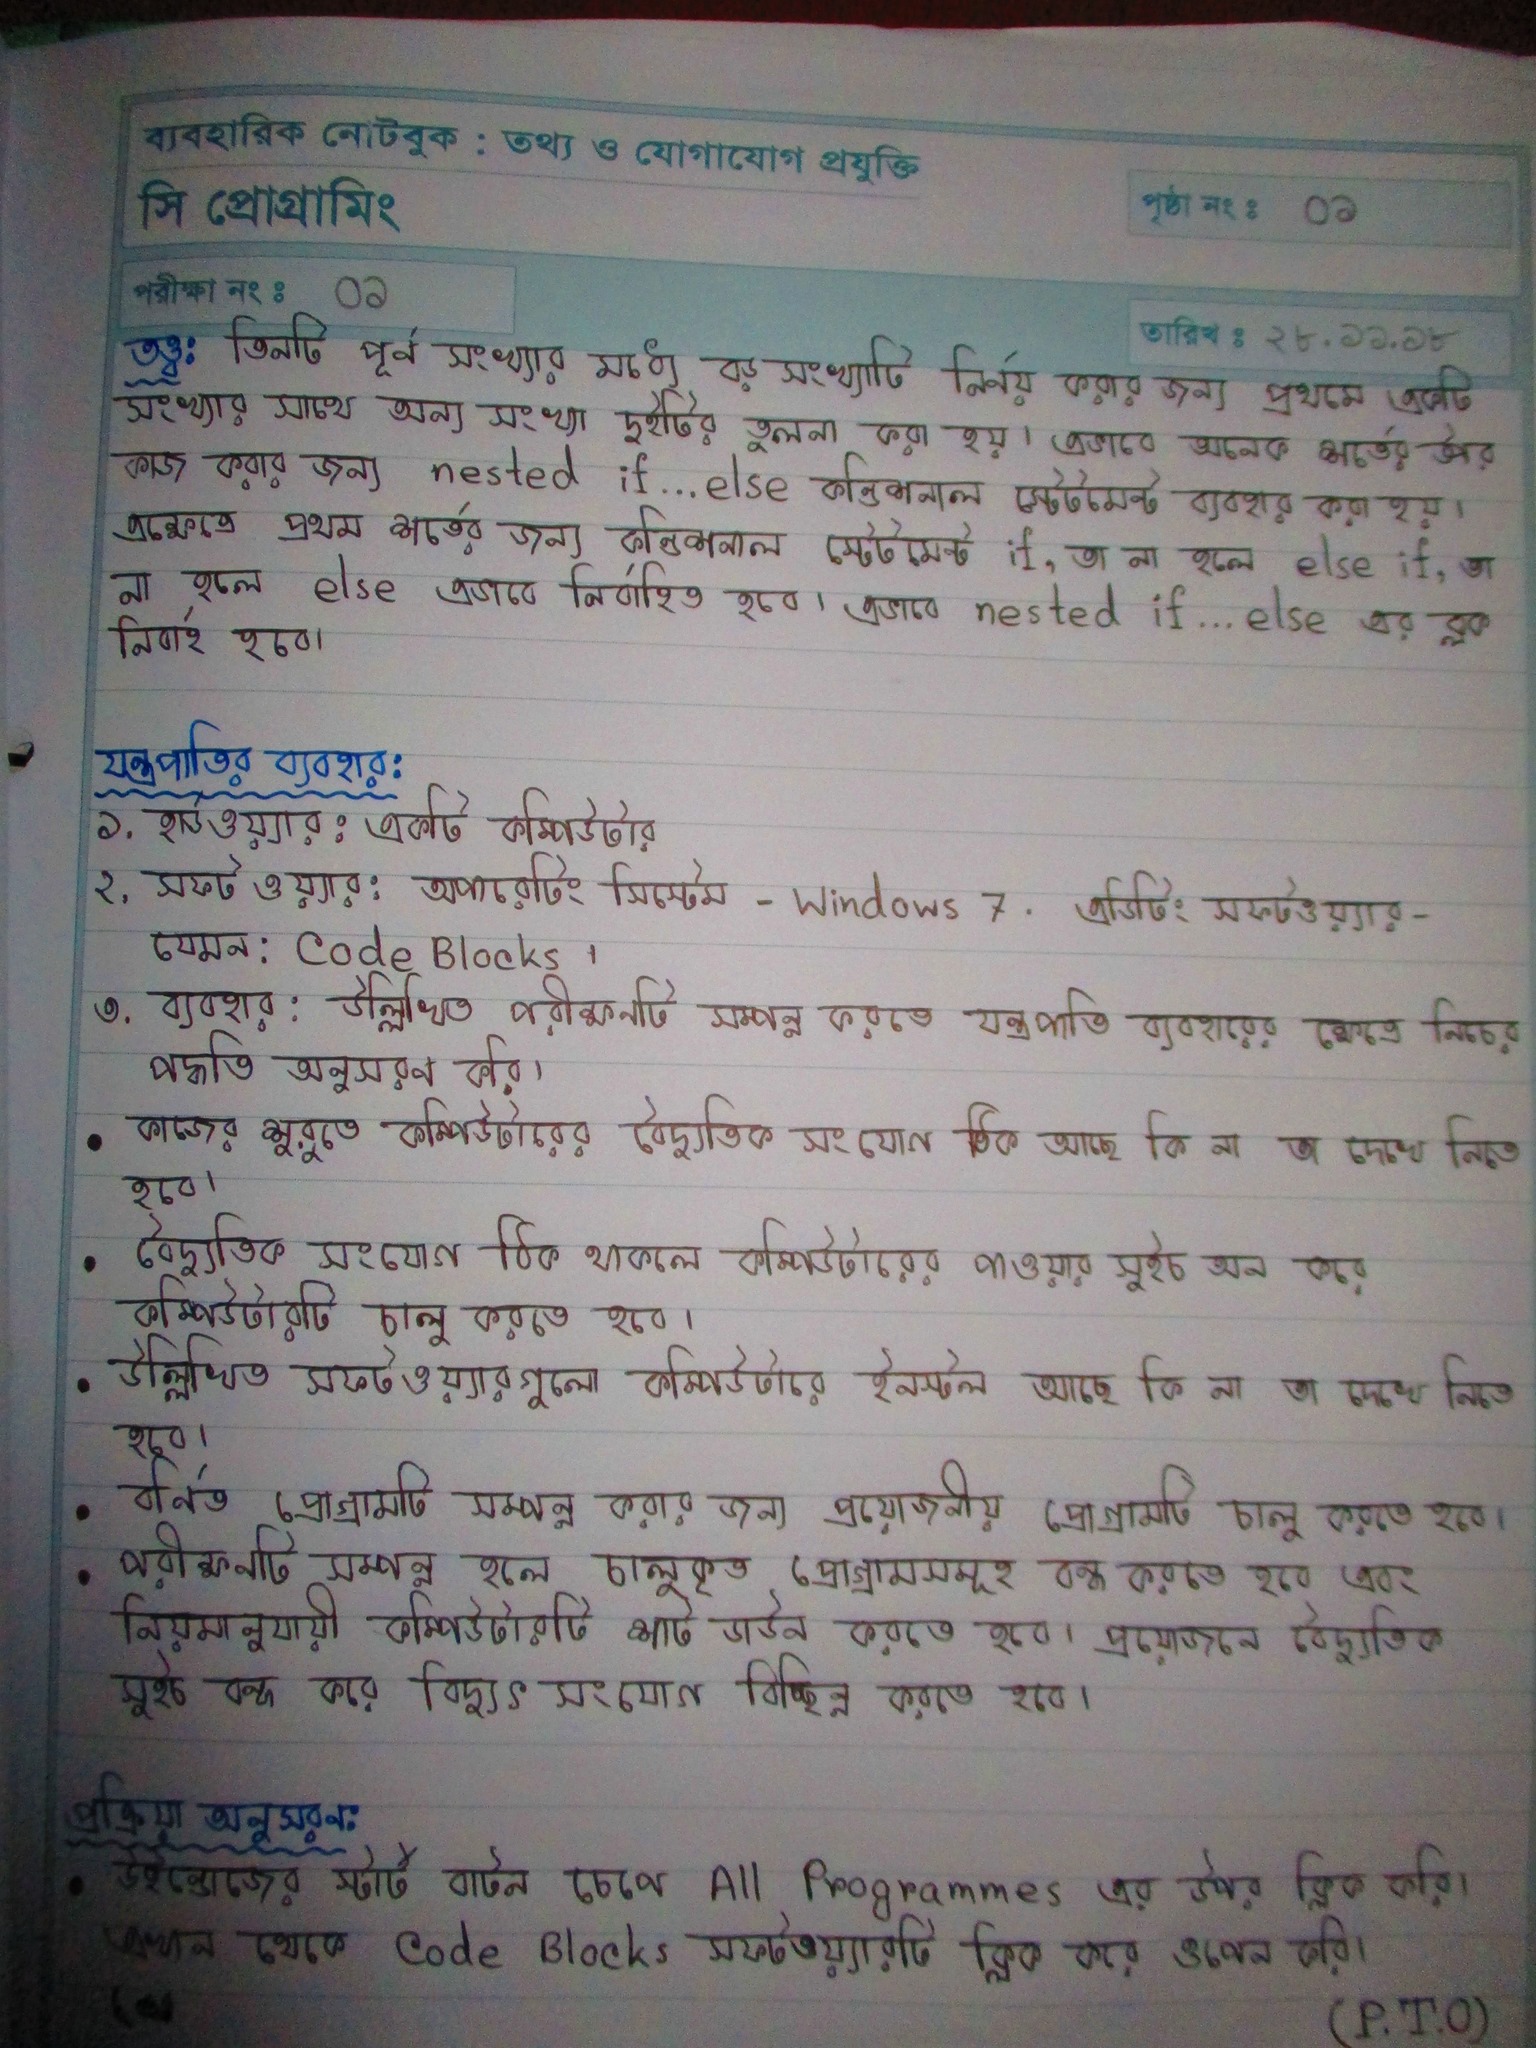 ব্যবহারিক নোটবুক : তথ্য ও যোগাযোগ প্রযুক্তি
সি প্রোগ্রামিং
পৃষ্ঠা নং : ০১
পরীক্ষা নং : ০১
তারিখ : ২৮.১১.১৮
তত্ত্ব: তিনটি পূর্ন সংখ্যার মধ্যে বড় সংখ্যাটি নির্নয় করার জন্য প্রথমে একটি
সংখ্যার সাথে অন্য সংখ্যা দুইটির তুলনা করা হয়। এভাবে অনেক শর্তের উপর
কাজ করার জন্য nested if...else কন্ডিশনাল স্টেটমেন্ট ব্যবহার করা হয়।
এক্ষেত্রে প্রথম শর্তের জন্য কন্ডিশনাল স্টেটমেন্ট if, তা না হলে else if, তা
না হলে else এভাবে নির্বাহিত হবে। এভাবে nested if...else এর ব্লক
নির্বাহ হবে।
যন্ত্রপাতির ব্যবহার:
১. হার্ডওয়্যার: একটি কম্পিউটার
২. সফটওয়্যার: অপারেটিং সিস্টেম - Windows 7. এডিটিং সফটওয়্যার-
যেমন: Code Blocks।
৩. ব্যবহার: উল্লিখিত পরীক্ষনটি সম্পন্ন করতে যন্ত্রপাতি ব্যবহারের ক্ষেত্রে নিচের
পদ্ধতি অনুসরণ করি।
• কাজের শুরুতে কম্পিউটারের বৈদ্যুতিক সংযোগ ঠিক আছে কি না তা দেখে নিতে
হবে।
• বৈদ্যুতিক সংযোগ ঠিক থাকলে কম্পিউটারের পাওয়ার সুইচ অন করে
কম্পিউটারটি চালু করতে হবে।
• উল্লিখিত সফটওয়্যারগুলো কম্পিউটারে ইনস্টল আছে কি না তা দেখে নিতে
হবে।
• বর্নিত প্রোগ্রামটি সম্পন্ন করার জন্য প্রয়োজনীয় প্রোগ্রামটি চালু করতে হবে।
• পরীক্ষনটি সম্পন্ন হলে চালুকৃত প্রোগ্রামসমূহ বন্ধ করতে হবে এবং
নিয়মানুযায়ী কম্পিউটারটি শাট ডাউন করতে হবে। প্রয়োজনে বৈদ্যুতিক
সুইচ বন্ধ করে বিদ্যুৎ সংযোগ বিচ্ছিন্ন করতে হবে।
প্রক্রিয়া অনুসরন:
• উইন্ডোজের স্টার্ট বাটন চেপে All Programmes এর উপর ক্লিক করি।
এখান থেকে Code Blocks সফটওয়্যারটি ক্লিক করে ওপেন করি।
(P.T.O)